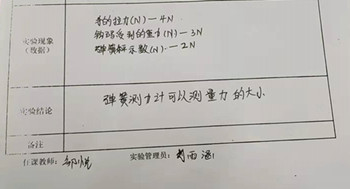 手的拉力(N)—4N
实验现象
(数据)
钩码受到的重力(N)—3N
弹簧秤示数(N).—2N
实验结论
弹簧测力计可以测量力的大小
备注
任课教师:
实验管理员: